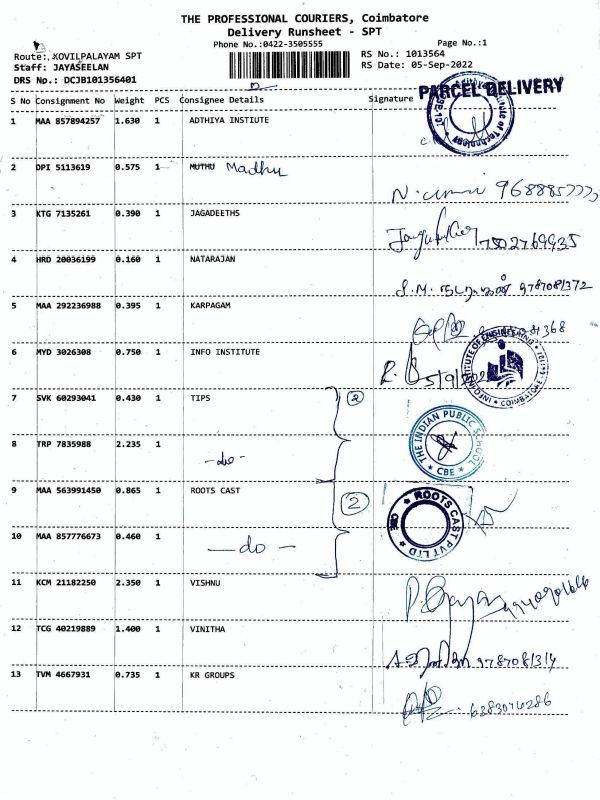 THE PROFESSIONAL COURIERS, Coimbatore
Delivery Runsheet - SPT
Phone No.:0422-3505555 Page No.:1
Route:. KOVILPALAYAM SPT RS No.: 1013564
Staff: JAYASEELAN RS Date: 05-Sep-2022
DRS No.: DCJB101356401
PARCEL DELIVERY
S No Consignment No Weight PCS Consignee Details Signature
1 MAA 857894257 1.630 1 ADTHIYA INSTIUTE
2 DPI 5113619 0.575 1 MUTHU Madhu
3 KTG 7135261 0.390 1 JAGADEETHS
4 HRD 20036199 0.160 1 NATARAJAN
5 MAA 292236988 0.395 1 KARPAGAM
6 MYD 3026308 0.750 1 INFO INSTITUTE
7 SVK 60293041 0.430 1 TIPS 2
THE INDIAN PUBLIC SCHOOL
CBE
8 TRP 7835988 2.235 1 -do-
9 MAA 563991450 0.865 1 ROOTS CAST 2
ROOTS CAST PVT LTD
CBE
10 MAA 857776673 0.460 1 -do-
11 KCM 21182250 2.350 1 VISHNU
12 TCG 40219889 1.400 1 VINITHA
13 TVM 4667931 0.735 1 KR GROUPS